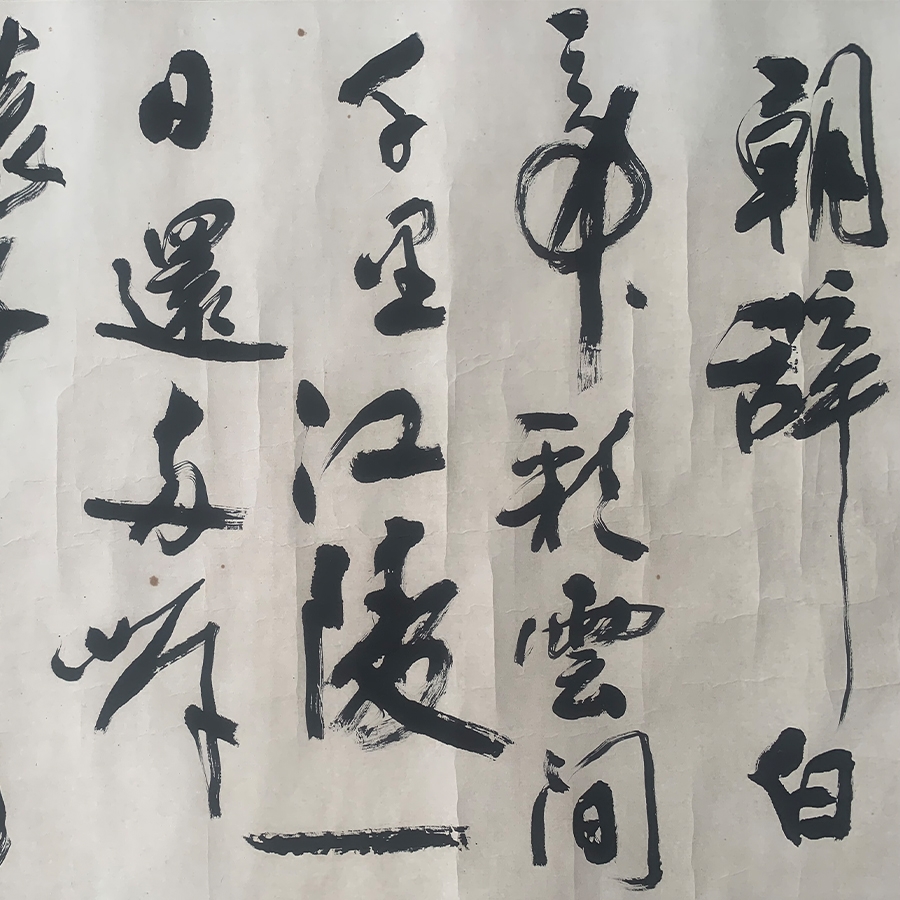 朝辞白
帝彩雲间
千里江陵一
日還两岸